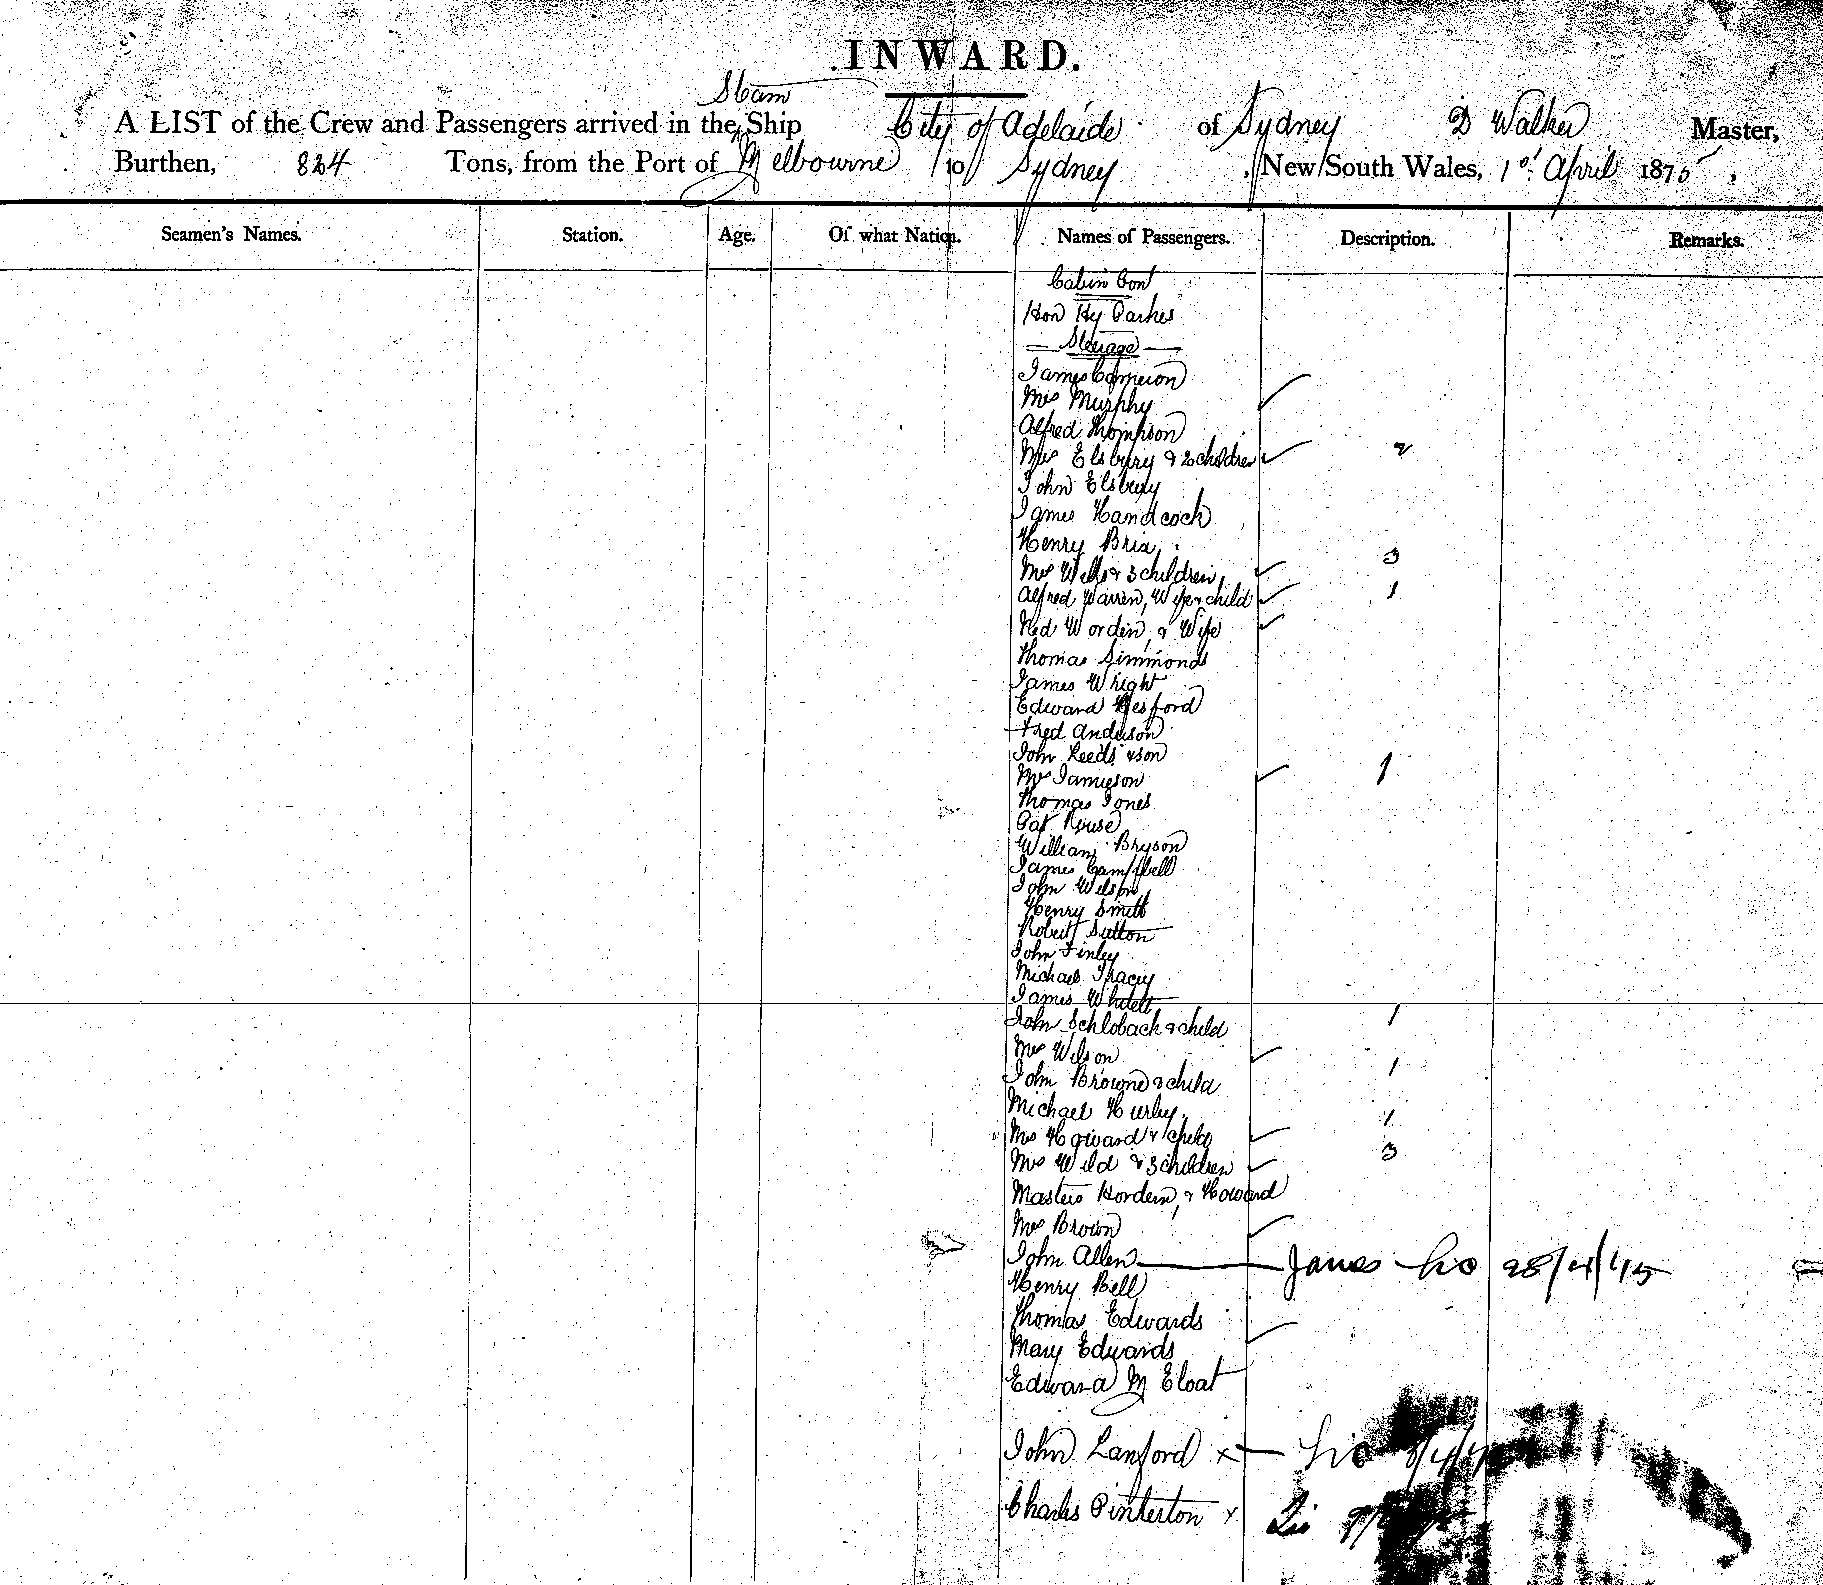 INWARD.
Steam
A LIST of the Crew and Passengers arrived in the Ship City of Adelaide of Sydney D Walker Master,
Burthen, 824 Tons, from the Port of Melbourne to Sydney , New South Wales, 1st April 1875,
Seamen's Names. Station. Age. Of what Nation. Names of Passengers. Description. Remarks.
Cabin Con
Hon Hy Parkes
Steerage
James Cameron
Mrs Murphy
Alfred Thompson
Mrs Elsbury & 2 children 2
John Elsbury
James Handcock
Henry Brix
Mrs Wells & 3 children 3
Alfred Warren, Wife & child 1
Ned Worden, & Wife
Thomas Simmonds
James Wright
Edward Hesford
Fred Anderson
John Leeds & son
Mrs Jamieson 1
Thomas Jones
Pat Rouse
William Bryson
James Campbell
John Wilson
Henry Smith
Robert Sutton
John Finley
Michael Tracey
James
John Schlobach & child 1
Mrs Wilson
John Browne & child 1
Michael Hurley
Mrs Howard & 1 child 1
Mrs Wild & 3 children 3
Masters Hordern, & Howard
Mrs Brown
John Allen 28/4/45
Henry Bell
Thomas Edwards
Mary Edwards
Edward M Eloat
John Lanford x
Charles Pinkerton x